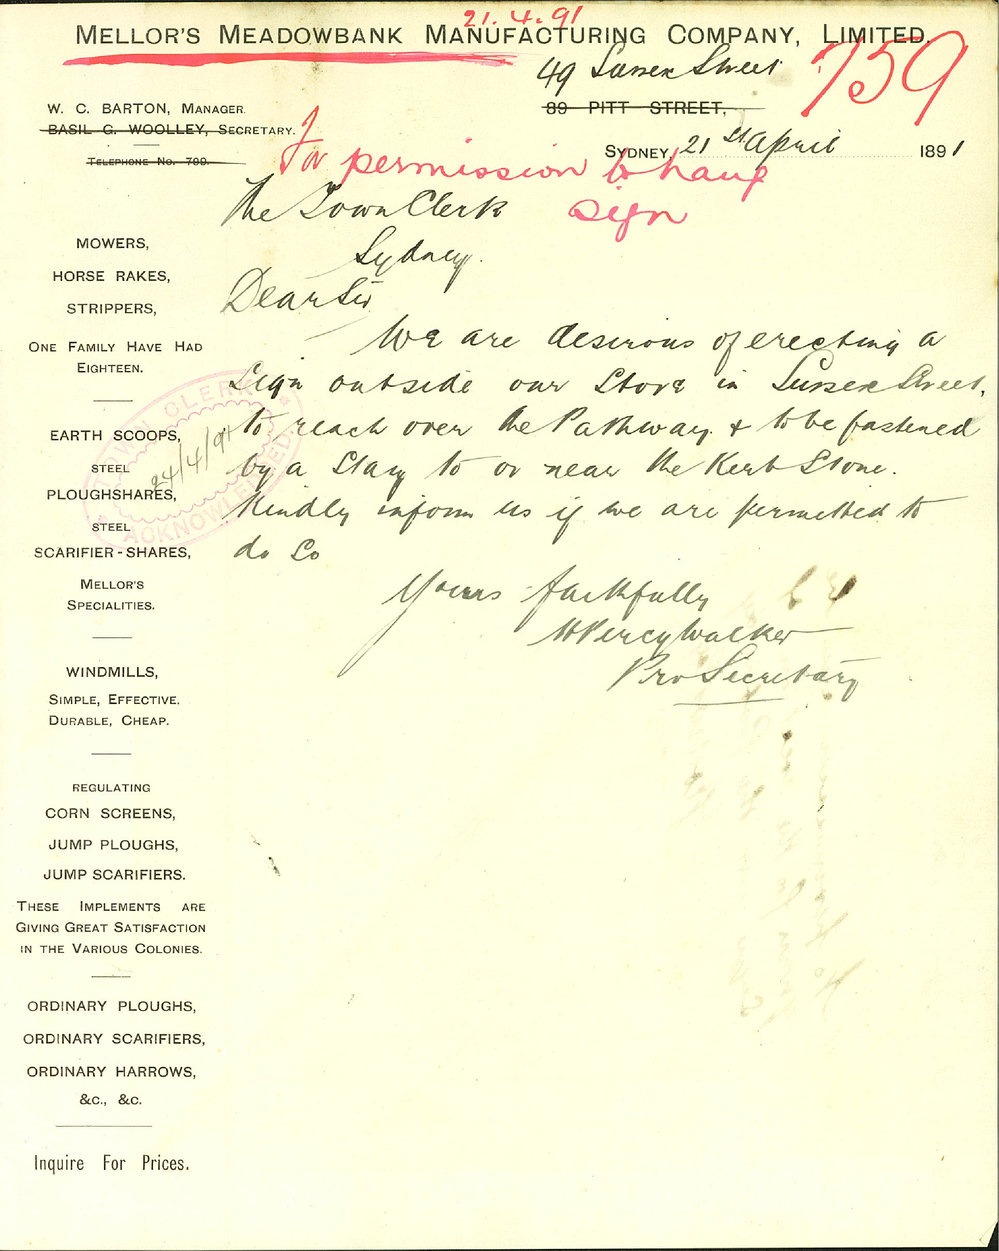 21.4.91
MELLOR'S MEADOWBANK MANUFACTURING COMPANY, LIMITED.
759
49 Sussex Street
89 PITT STREET,
W. C. BARTON, MANAGER.
BASIL G. WOOLLEY, SECRETARY.
TELEPHONE No. 799.
SYDNEY, 21st April 1891
For permission to hang
sign
The Town Clerk
Sydney.
Dear Sir
We are desirous of erecting a
Sign outside our Store in Sussex Street,
to reach over the Pathway & to be fastened
by a Stay to or near the Kerb Stone.
Kindly inform us if we are permitted to
do so
Yours faithfully
H Percy Walker
Pro Secretary
TOWN CLERK
24/4/91
ACKNOWLEDGED
MOWERS,
HORSE RAKES,
STRIPPERS,
ONE FAMILY HAVE HAD
EIGHTEEN.
EARTH SCOOPS,
STEEL
PLOUGHSHARES,
STEEL
SCARIFIER-SHARES,
MELLOR'S
SPECIALITIES.
WINDMILLS,
SIMPLE, EFFECTIVE.
DURABLE, CHEAP.
REGULATING
CORN SCREENS,
JUMP PLOUGHS,
JUMP SCARIFIERS.
THESE IMPLEMENTS ARE
GIVING GREAT SATISFACTION
IN THE VARIOUS COLONIES.
ORDINARY PLOUGHS,
ORDINARY SCARIFIERS,
ORDINARY HARROWS,
&c., &c.
Inquire For Prices.